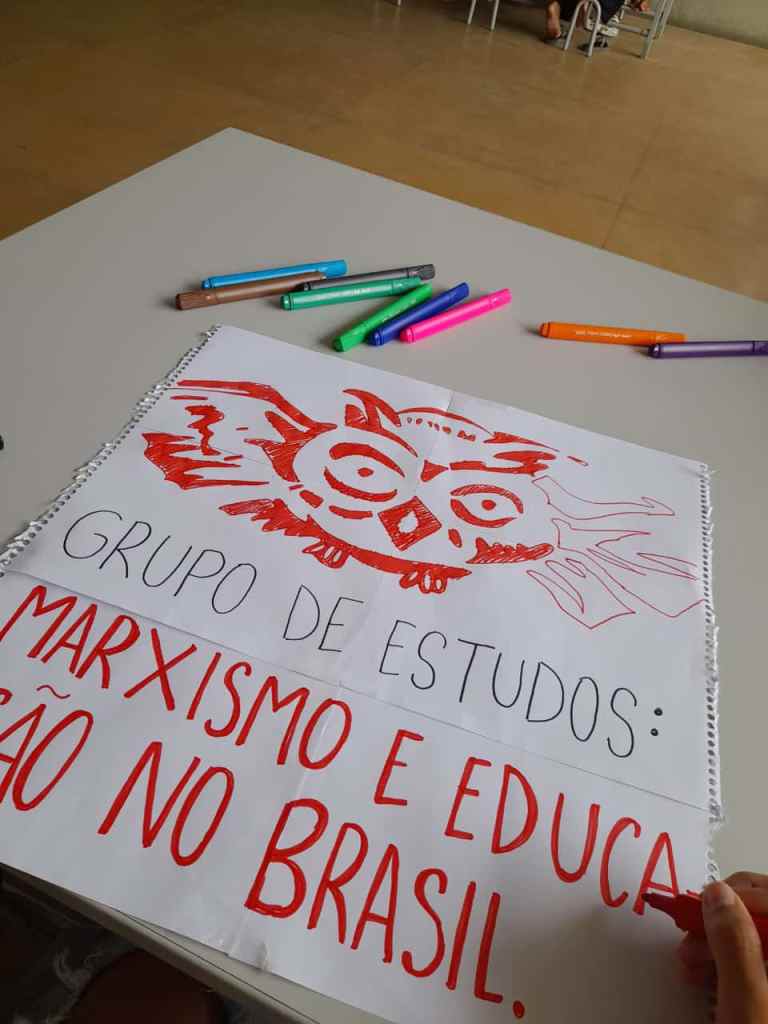 GRUPO DE ESTUDOS:
MARXISMO E EDUCA-
ÇÃO NO BRASIL.